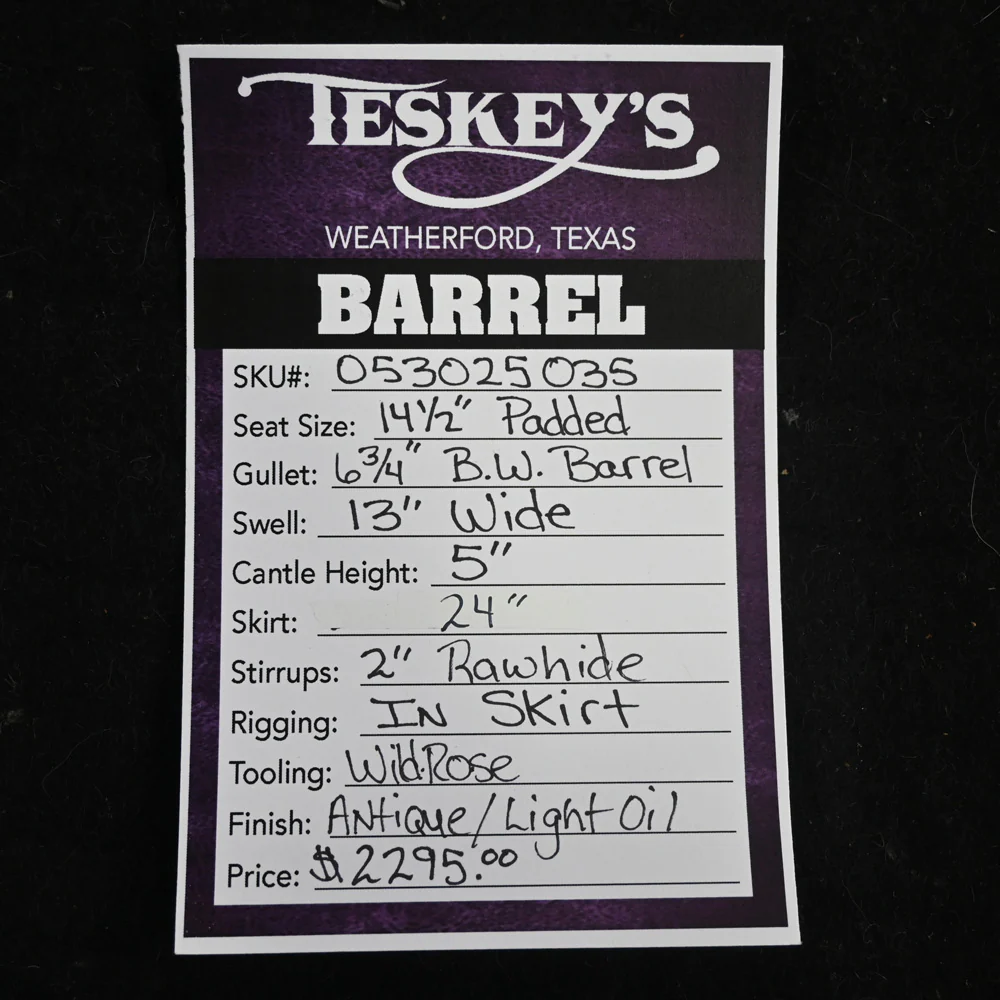 TESKEY'S
WEATHERFORD, TEXAS
BARREL
SKU#: 053025035
Seat Size: 14½" Padded
Gullet: 6¾" B.W. Barrel
Swell: 13" Wide
Cantle Height: 5"
Skirt: 24"
Stirrups: 2" Rawhide
Rigging: IN SKirt
Tooling: Wild Rose
Finish: ANtique/Light Oil
Price: $2295.00